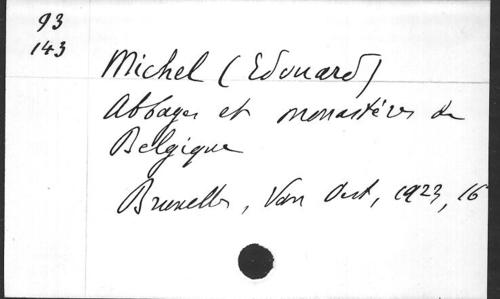 93
143
Michel (Edouard)
Abbayes et monastères de
Belgique
Bruxelles, Van Oest, 1923, 16